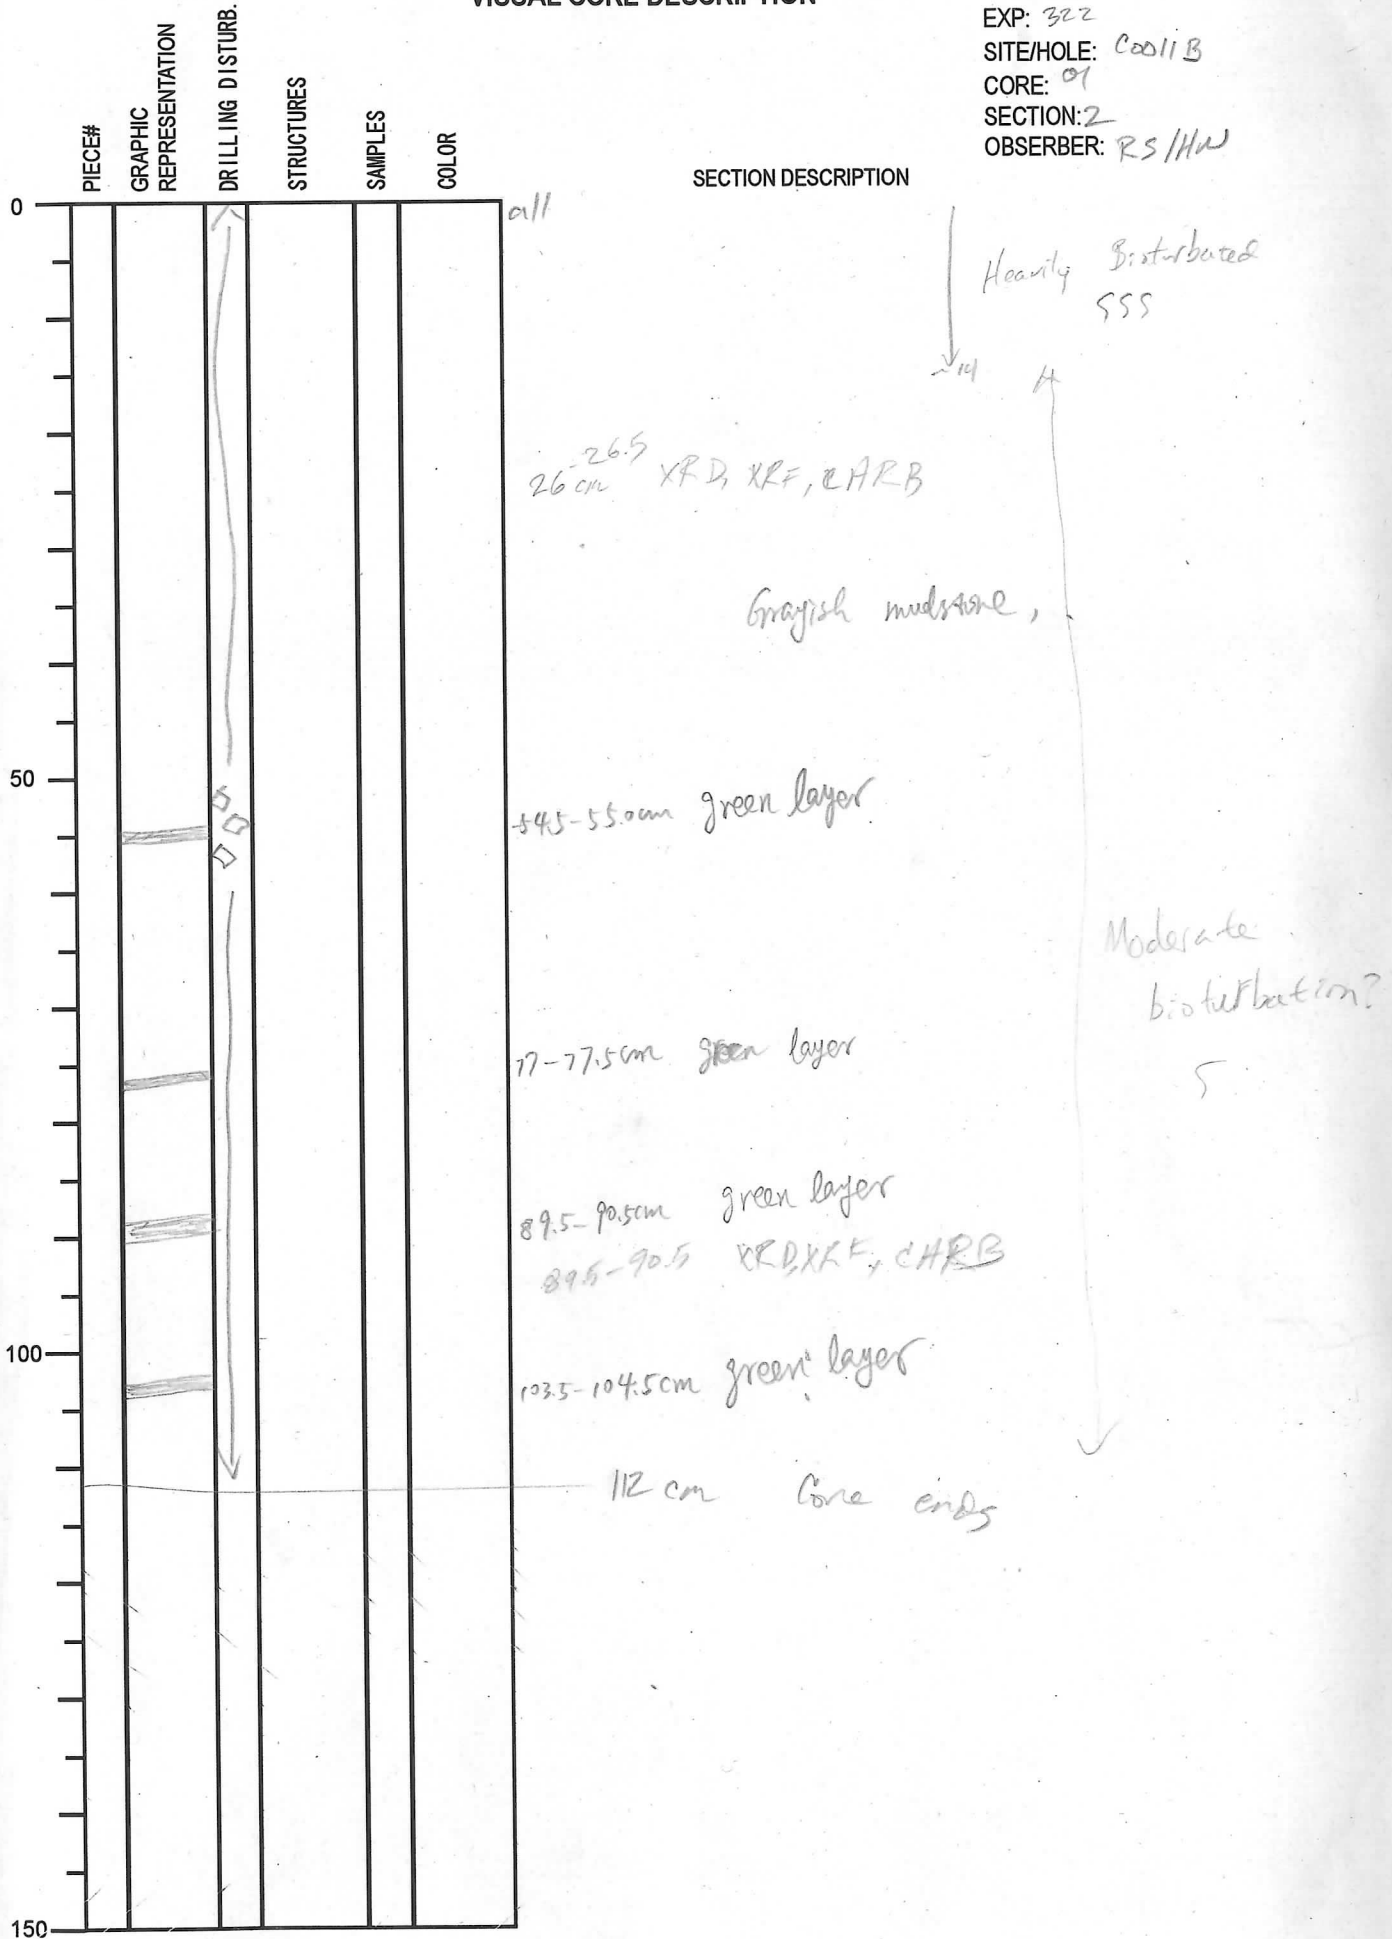 VISUAL CORE DESCRIPTION
EXP: 322
SITE/HOLE: C0011B
CORE: 01
SECTION: 2
OBSERBER: RS/HW
PIECE#
GRAPHIC
REPRESENTATION
DRILLING DISTURB.
STRUCTURES
SAMPLES
COLOR
SECTION DESCRIPTION
0
all
Heavily Bioturbated
SSS
~14
26-26.5 cm XRD, XRF, CARB
Grayish mudstone,
50
54.5-55.0cm green layer
Moderate
bioturbation?
S
77-77.5cm green layer
89.5-90.5cm green layer
89.5-90.5 XRD, XRF, CARB
100
103.5-104.5cm green layer
112 cm Core ends
150